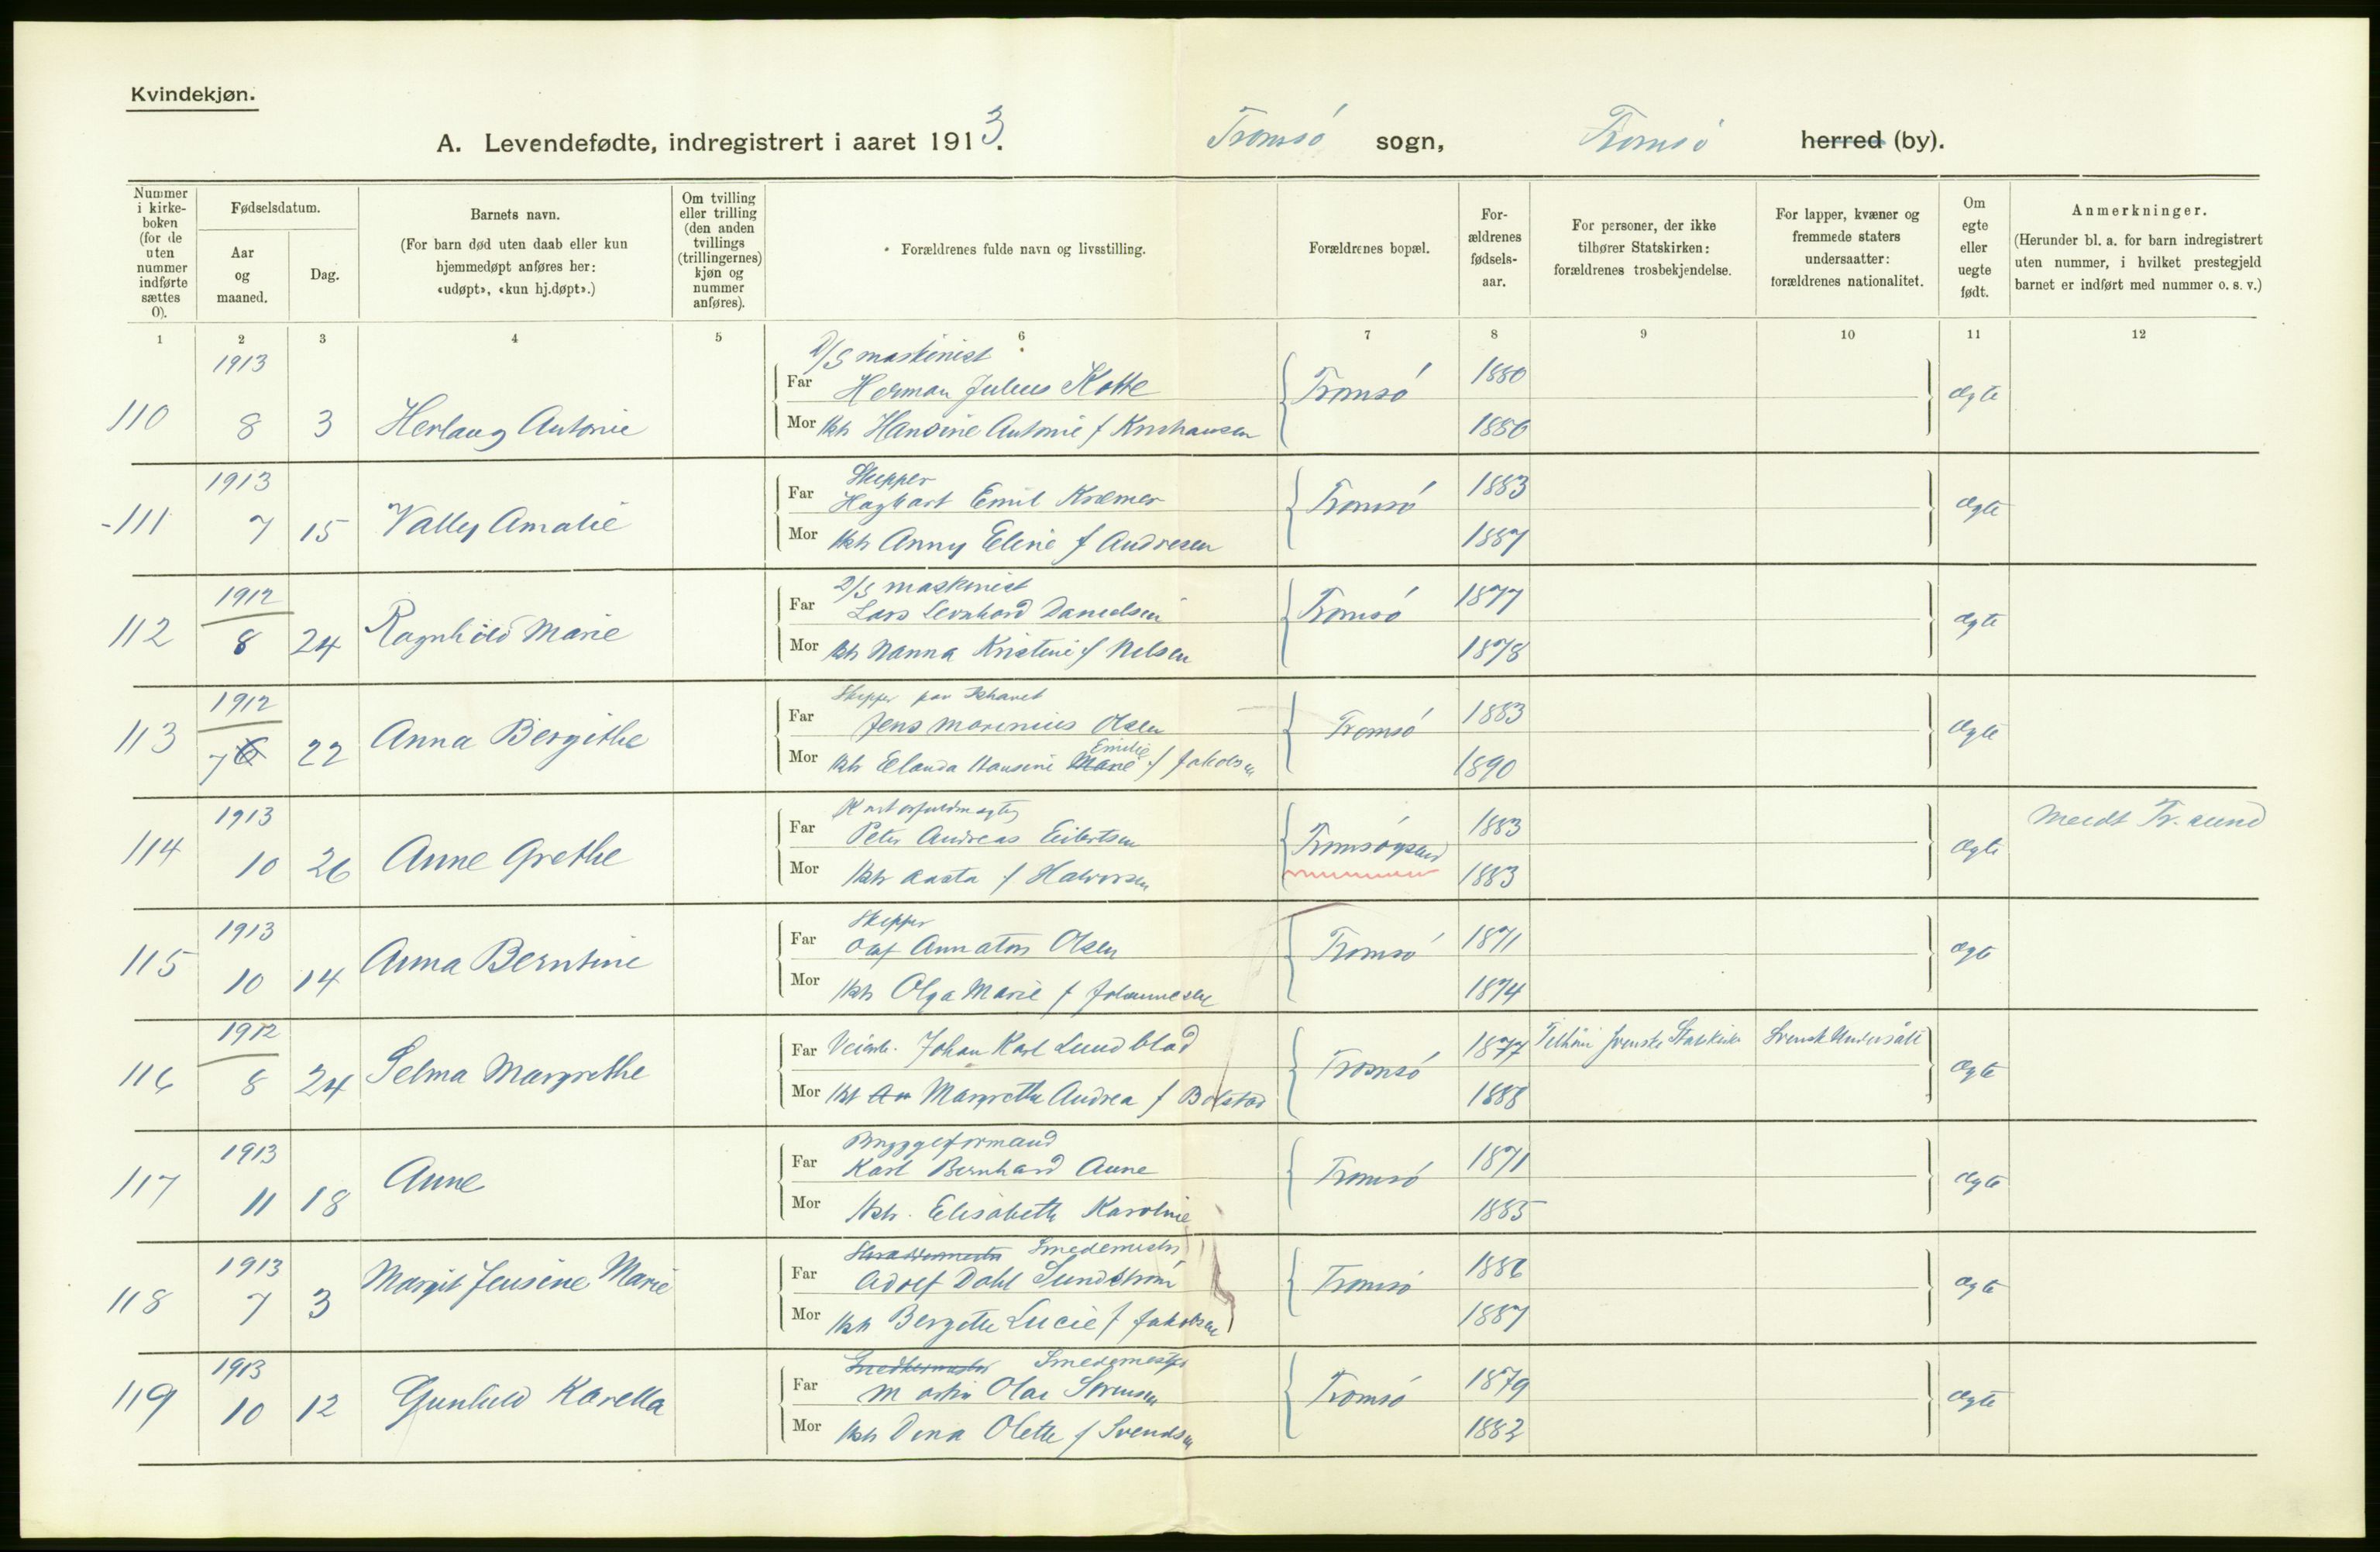 Kvindekjøn.
A. Levendefødte, indregistrert i aaret 1913. Tromsø sogn, Tromsø herred (by).
Nummer i kirkeboken (for de uten nummer indførte sættes 0).
Fødselsdatum.
Aar og maaned.
Dag.
Barnets navn.
(For barn død uten daab eller kun hjemmedøpt anføres her: «udøpt», «kun hj.døpt».)
Om tvilling eller trilling (den anden tvillings (trillingernes) kjøn og nummer anføres).
Forældrenes fulde navn og livsstilling.
Forældrenes bopæl.
Forældrenes fødselsaar.
For personer, der ikke tilhører Statskirken: forældrenes trosbekjendelse.
For lapper, kvæner og fremmede staters undersaatter: forældrenes nationalitet.
Om egte eller uegte født.
Anmerkninger.
(Herunder bl. a. for barn indregistrert uten nummer, i hvilket prestegjeld barnet er indført med nummer o. s. v.)
1 2 3 4 5 6 7 8 9 10 11 12
1913 D/S maskinist
Far Herman Julius Kotte Tromsø 1880 ægte
110 8 3 Herlaug Antonie
Mor Hst Hansine Antonie f 1880
1913 Skipper
Far Hagbart Emil Kræmer Tromsø 1883 ægte
111 7 15 Vally Amalie
Mor Hst Anny Eline f Andresen 1887
1912 D/S maskinist
Far Lars Danielsen Tromsø 1877 ægte
112 8 24 Ragnhild Marie
Mor Hst Nanna Kristine f Nilsen 1878
1912 Skipper paa Ishavet
Far Jens Marenius Olsen Tromsø 1883 ægte
113 7 6 22 Anna Bergithe
Mor Hst Elanda Hansine Marie Emilie f Jakobsen 1890
1913
Far Peter Andreas Eibertsen Tromsøysund 1883 ægte Meldt Tr.sund
114 10 26 Anne Grethe
Mor Hst Aasta f Halvorsen 1883
1913 Skipper
Far Olaf Annaton Olsen Tromsø 1871 ægte
115 10 14 Anna Berntine
Mor Hst Olga Marie f 1874
1912
Far Johan Karl Lundblad Tromsø 1877 Tilhør svenske Statskirke Svensk Undersått ægte
116 8 24 Selma Margrethe
Mor Hst Margrethe Andrea f Bolstad 1888
1913 Bryggeformand
Far Karl Bernhard Aune Tromsø 1871 ægte
117 11 18 Aune
Mor Hst. Elisabeth Karoline 1885
1913 Smedemester
Far Adolf Dahl Sundstrøm Tromsø 1886 ægte
118 7 3 Margit Jensine Marie
Mor Hst Bergitte Lucie f Jakobsen 1887
1913 Smedemester
Far Martin Olai Sørensen Tromsø 1879 ægte
119 10 12 Gunhild Karella
Mor Hst Dina Olette f Svendsen 1882